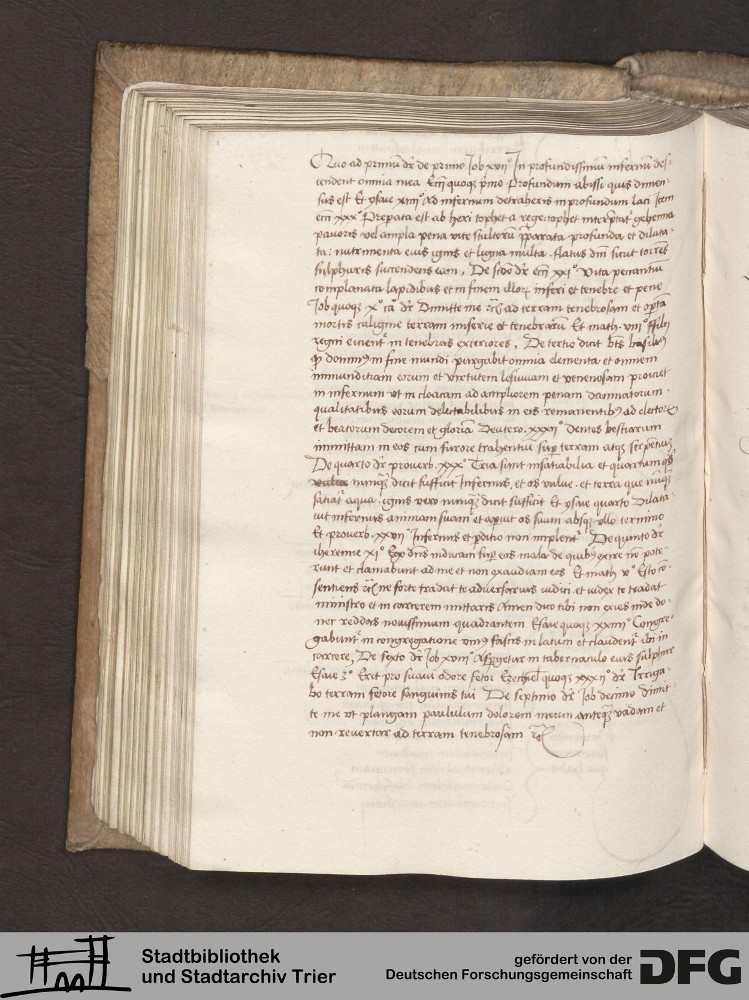 Quo ad primū dr̄ de primo Job xvii° In profundissimū infernū des-
cendent omnia mea Eccī quoqꝫ pͦmo Profundum abissi quis dimen-
sus est Et ysaie xiiii° Ad infernum detraheris in profundum laci Item
eiusdē xxx° Preparata est ab heri tophet a rege tophet interp̄tatʳ gehenna
pavoris vel ampla pena vite stultorū p̄parata profunda et dilata-
ta: nutrimenta eius ignis et ligna multa . flatus dn̄i sicut torrēs
sulphuris succendens eam , De scd̄o dr̄ eccī xxi° Via peccantiū
complanata lapidibus et in finem illorꝫ inferi et tenebre et pene
Job quoqꝫ x° ca° dr̄ Dimitte me ꝛc̄ ad terram tenebrosam et opertā
mortis caligine terram miserie et tenebrarū Et math . viii° ffilij
regni eicientʳ in tenebras exteriores , De tertio dicit bt̄s basiliꝰ
ꝙ dominꝰ in fine mundi purgabit omnia elementa et omnem
immunditiam eorum et virtutem lesiuam et venenosam proiciet
in infernum vt in cloacam ad ampliorem penam damnatorum .
qualitatibus eorum delectabilibus in eis remanentibꝰ ad electorꝫ
et beatorum decorem et gloriā Deutero . xxxii° dentes bestiarum
immittam in eos cum furore trahentiū suꝑ terram atqꝫ serpentiū
De quarto dr̄ proverb . xxx° Tria sunt insatiabilia et quartum qd̄
nunqꝫ dicit sufficit Infernus, et os vulue . et terra que nūqꝫ
satiatʳ aqua . ignis vero nunqꝫ dicit sufficit Et ysaie quarto Dilata-
uit infernus animam suam et aperuit os suum absqꝫ vllo termino
Et proverb . xxvii° Infernus et ꝑditio non implentʳ De quinto dr̄
iheremie xi° Ego dn̄s inducam suꝑ eos mala de quibꝰ exire non pote-
runt et clamabunt ad me et non exaudiam eos Et math v° Esto cō-
sentiens ꝛc̄ ne forte tradat te adversarius iudici et iudex te tradat
ministro et in carcerem mittaris Amen dico tibi non exies inde do-
nec reddas novissimum quadrantem Esaie quoqꝫ xxiiii° Congre-
gabuntʳ in congregatione vniꝰ fascis in lacum et claudentʳ ibi in
carcere, De sexto dr̄ Job xviii° Aspergetur in tabernaculo eius sulphur
Esaie 3° Erit pro suaui odore fetor Ezechiel quoqꝫ xxxii° dr̄ Irriga-
bo terram fetore sanguinis tui De septimo dr̄ Job decimo dimit-
te me vt plangam paululum dolorem meum anteqꝫ vadam et
non revertar ad terram tenebrosam ꝛc̄
Stadtbibliothek
und Stadtarchiv Trier
gefördert von der
Deutschen Forschungsgemeinschaft
DFG